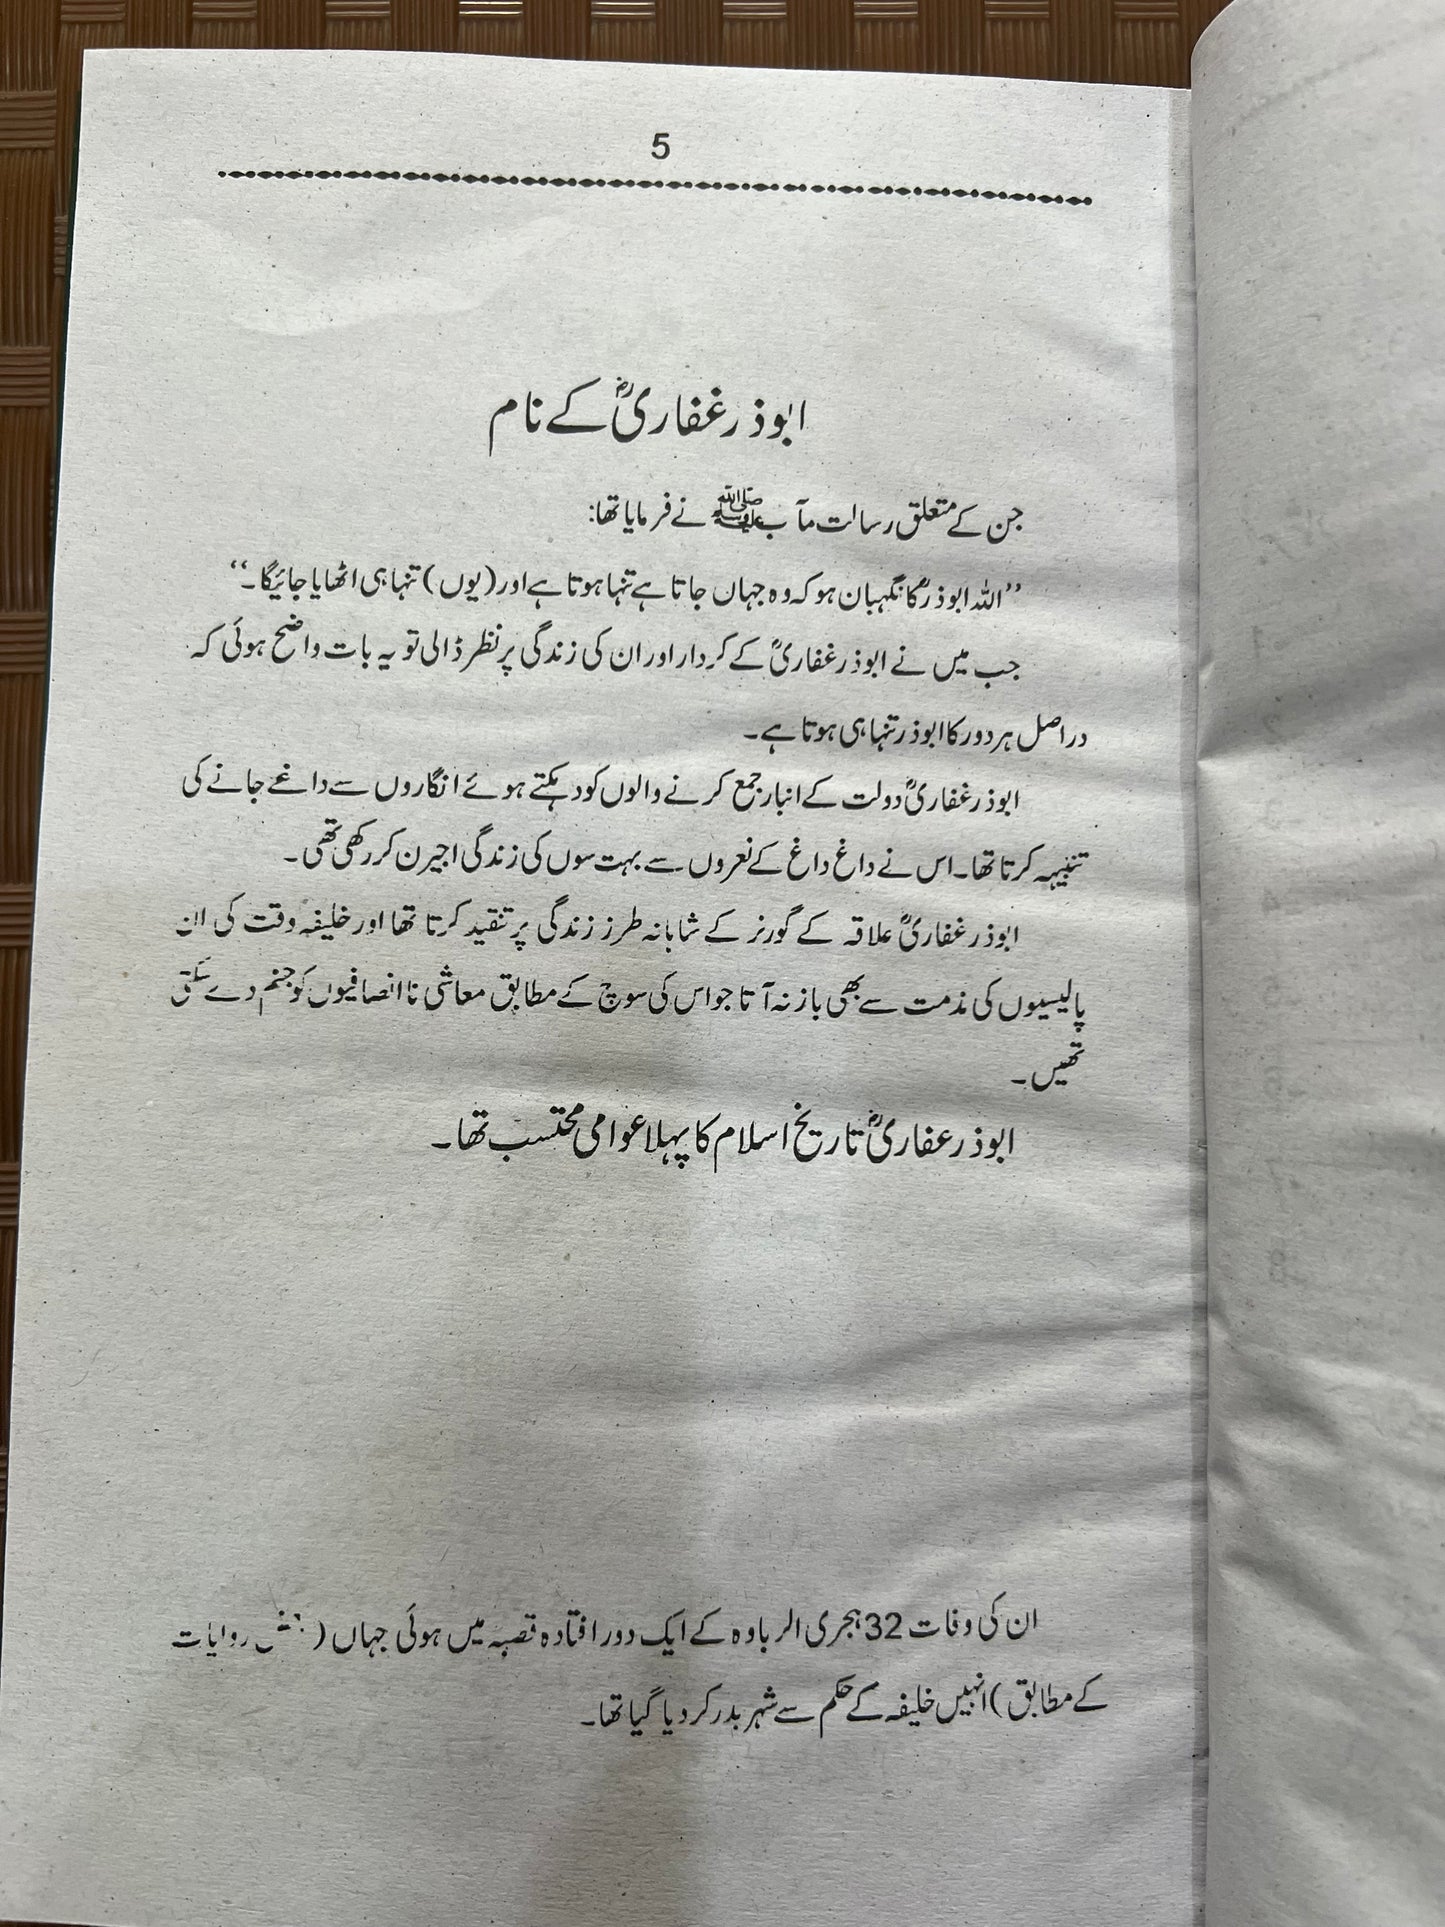 5
ابوذر غفاریؓ کے نام
جن کے متعلق رسالت مآب ﷺ نے فرمایا تھا:
’’اللہ ابوذرؓ کا نگہبان ہو کہ وہ جہاں جاتا ہے تنہا ہوتا ہے اور (یوں) تنہا ہی اٹھایا جائیگا۔‘‘
جب میں نے ابوذر غفاریؓ کے کردار اور ان کی زندگی پر نظر ڈالی تو یہ بات واضح ہوئی کہ
دراصل ہر دور کا ابوذر تنہا ہی ہوتا ہے۔
ابوذر غفاریؓ دولت کے انبار جمع کرنے والوں کو دہکتے ہوئے انگاروں سے داغے جانے کی
تنبیہہ کرتا تھا۔ اس نے داغ داغ کے نعروں سے بہت سوں کی زندگی اجیرن کر رکھی تھی۔
ابوذر غفاریؓ علاقہ کے گورنر کے شاہانہ طرز زندگی پر تنقید کرتا تھا اور خلیفہ وقت کی ان
پالیسیوں کی مذمت سے بھی باز نہ آتا جو اس کی سوچ کے مطابق معاشی ناانصافیوں کو جنم دے سکتی
تھیں۔
ابوذر غفاریؓ تاریخ اسلام کا پہلا عوامی محتسب تھا۔
ان کی وفات 32 ہجری الرباوہ کے ایک دور افتادہ قصبہ میں ہوئی جہاں (بعض روایات
کے مطابق) انہیں خلیفہ کے حکم سے شہر بدر کر دیا گیا تھا۔